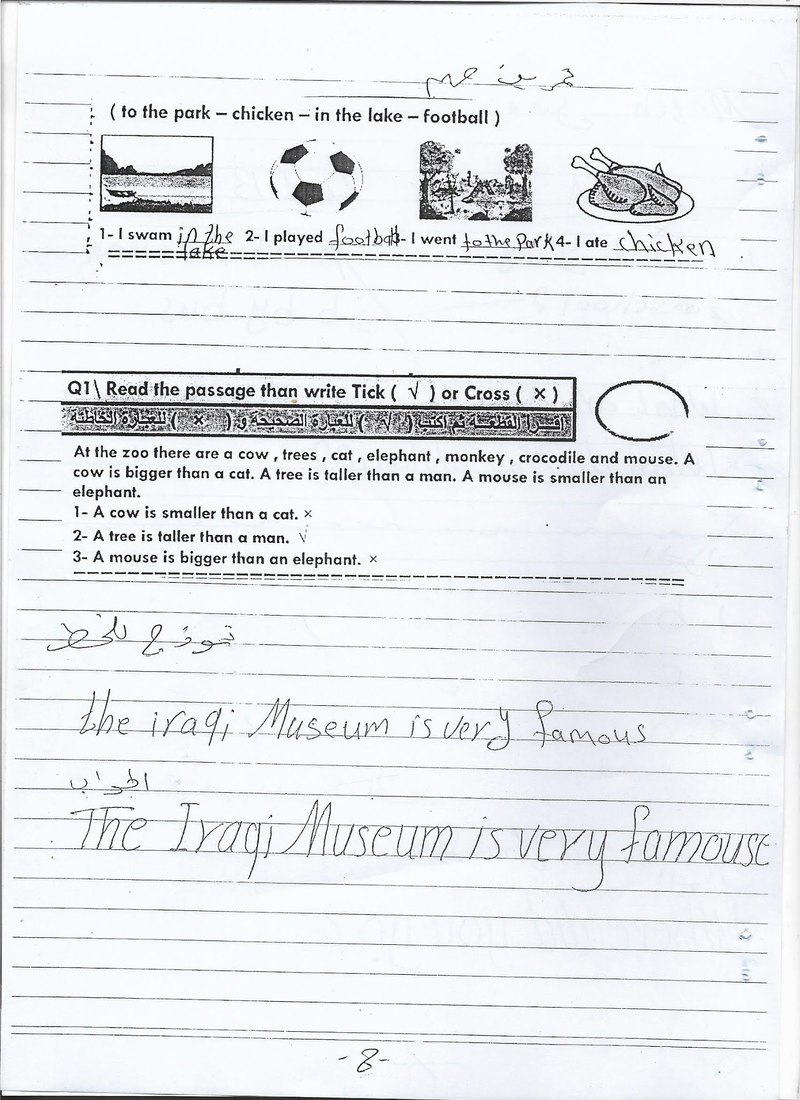 تمرين مهم
( to the park – chicken – in the lake – football )
1- I swam in the lake 2- I played football 3- I went to the park 4- I ate chicken
Q1\ Read the passage than write Tick ( √ ) or Cross ( × )
اقــرأ القطعــة ثم اكتب ( √ ) للعبارة الصحيحة و ( × ) للعبارة الخاطئة
At the zoo there are a cow , trees , cat , elephant , monkey , crocodile and mouse. A
cow is bigger than a cat. A tree is taller than a man. A mouse is smaller than an
elephant.
1- A cow is smaller than a cat. ×
2- A tree is taller than a man. √
3- A mouse is bigger than an elephant. ×
نموذج للخط
the iraqi Museum is very famous
الجواب
The Iraqi Museum is very famouse
-8-